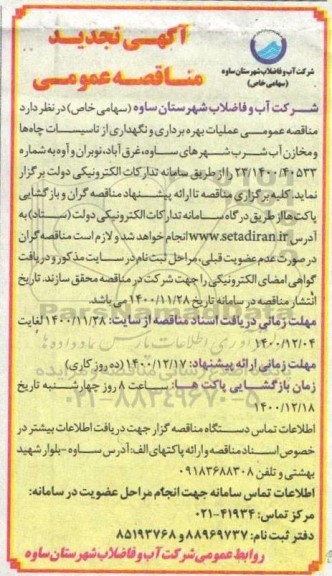 آگهی تجدید
مناقصه عمومی
شرکت آب و فاضلاب شهرستان ساوه
(سهامی خاص)
شرکت آب و فاضلاب شهرستان ساوه (سهامی خاص) در نظر دارد
مناقصه عمومی عملیات بهره برداری و نگهداری از تاسیسات چاه‌ها
و مخازن آب شرب شهرهای ساوه، غرق آباد، نوبران و آوه به شماره
۲۲/۱۴۰۰/۴۰۵۳۳ را از طریق سامانه تدارکات الکترونیکی دولت برگزار
نماید. کلیه برگزاری مناقصه تا ارائه پیشنهاد مناقصه گران و بازگشایی
پاکت ها از طریق درگاه سامانه تدارکات الکترونیکی دولت (ستاد) به
آدرس www.setadiran.ir انجام خواهد شد و لازم است مناقصه گران
در صورت عدم عضویت قبلی، مراحل ثبت نام در سایت مذکور و دریافت
گواهی امضای الکترونیکی را جهت شرکت در مناقصه محقق سازند. تاریخ
انتشار مناقصه در سامانه تاریخ ۱۴۰۰/۱۱/۲۸ می باشد.
مهلت زمانی دریافت اسناد مناقصه از سایت: ۱۴۰۰/۱۱/۲۸ لغایت
۱۴۰۰/۱۲/۰۴
مهلت زمانی ارائه پیشنهاد: ۱۴۰۰/۱۲/۱۷ (ده روز کاری)
زمان بازگشایی پاکت هـا: ساعت ۸ روز چهارشنبه تاریخ
۱۴۰۰/۱۲/۱۸
اطلاعات تماس دستگاه مناقصه گزار جهت دریافت اطلاعات بیشتر در
خصوص اسناد مناقصه و ارائه پاکتهای الف: آدرس ساوه - بلوار شهید
بهشتی و تلفن ۰۹۱۸۳۶۸۸۳۰۸
اطلاعات تماس سامانه جهت انجام مراحل عضویت در سامانه:
مرکز تماس: ۴۱۹۳۴-۰۲۱
دفتر ثبت نام: ۸۸۹۶۹۷۳۷ و ۸۵۱۹۳۷۶۸
روابط عمومی شرکت آب و فاضلاب شهرستان ساوه
ParsNamadData
۰۲۱-۸۸۳۴۹۶۷۰-۵